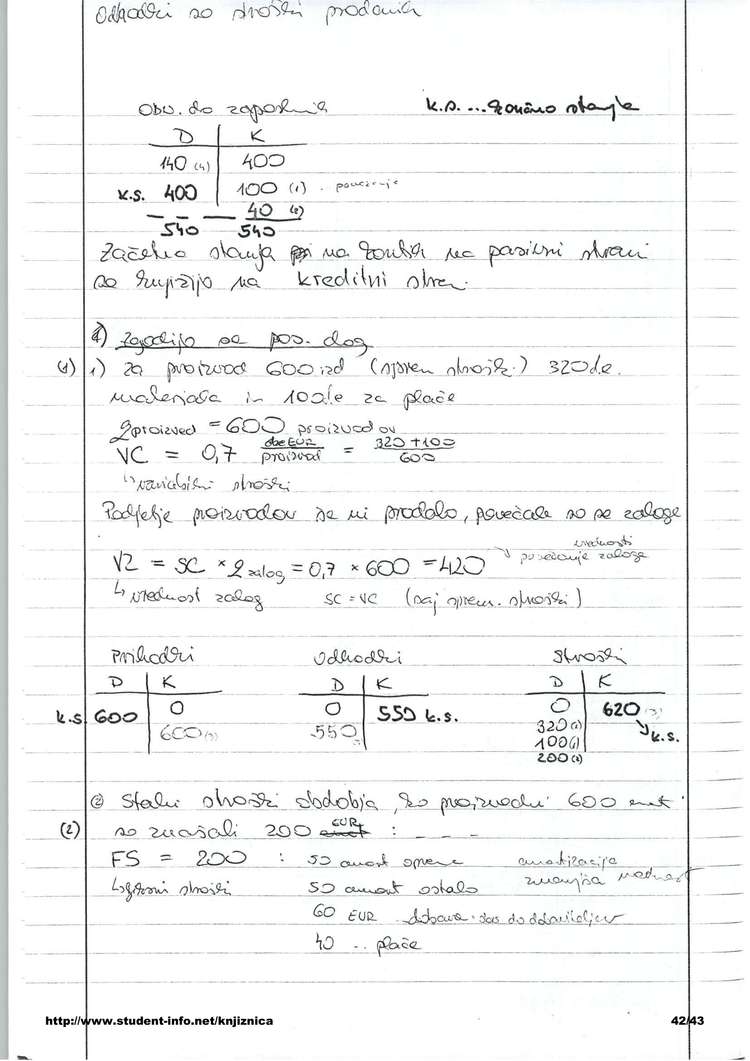 Odhodki so stroški prodanih
Obv. do zaposlenih K.S. ... končno stanje
D K
140 (4) 400
K.S. 400 100 (1) - povečanje
40 (2)
540 540
Začetna stanja na kontih na pasivni strani
se knjižijo na kreditni stran.
Zgodijo se pos. dog
(1) 1) za proizvod 600 izd (sprem strošk.) 320 d.e.
materiala in 100 d.e za plače
Q proizved = 600 proizvodov
VC = 0,7 EUR / proizvod = 320 + 100 / 600
↳ variabilni stroški
Podjetje proizvodov še ni prodalo, povečale so se zaloge
VZ = SC * Q zalog = 0,7 * 600 = 420 ↳ povečanje vrednosti zaloge
↳ vrednost zalog SC = VC (saj sprem. stroški)
Prihodki Odhodki Stroški
D K D K D K
K.S. 600 0 0 550 K.S. 0 620
600 (3) 550 320 (1) ↘ K.S.
100 (1)
200 (2)
(2) Stalni stroški obdobja, ko proizvodni 600 enot
(2) so znašali 200 EUR : _ _ _
FS = 200 : 50 amort opreme amortizacija
↳ fiksni stroški 50 amort ostalo zmanjša vrednost
60 EUR do dobaviteljev
40 .. plače
http://www.student-info.net/knjiznica 42/43